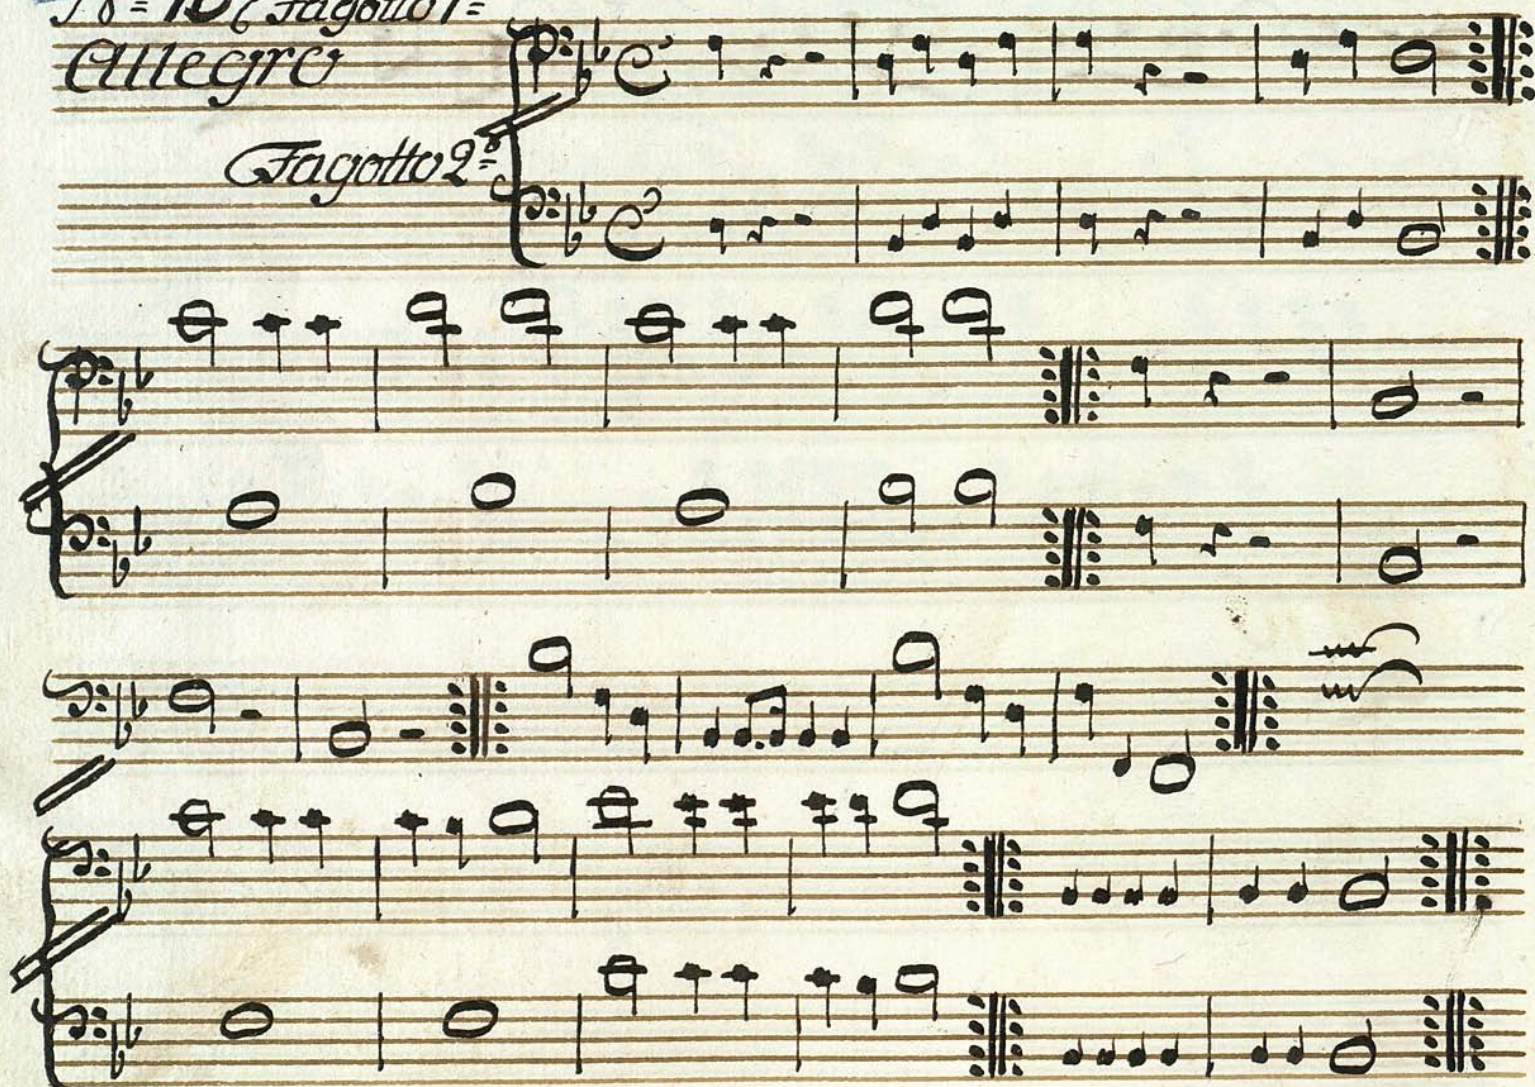 Fagotto 1º
Allegro
Fagotto 2º